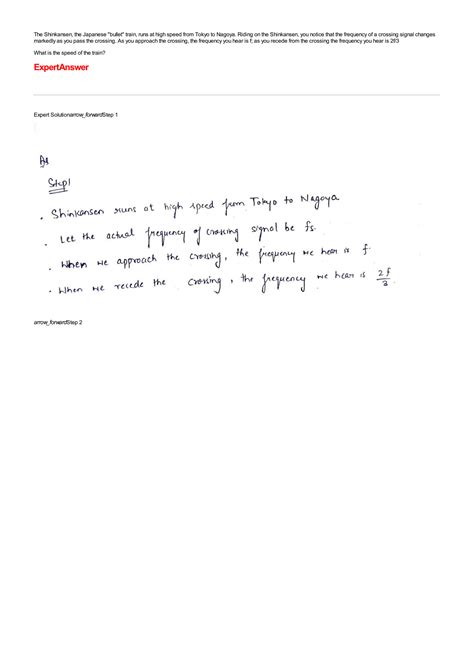 The Shinkansen, the Japanese "bullet" train, runs at high speed from Tokyo to Nagoya. Riding on the Shinkansen, you notice that the frequency of a crossing signal changes
markedly as you pass the crossing. As you approach the crossing, the frequency you hear is f; as you recede from the crossing the frequency you hear is 2f/3
What is the speed of the train?
ExpertAnswer
Expert Solutionarrow_forwardStep 1
Step1
. Shinkansen runs at high speed from Tokyo to Nagoya
. Let the actual frequency of crossing signal be fs.
. When we approach the crossing, the frequency we hear is f.
. When we recede the crossing, the frequency we hear is 2f/3.
arrow_forwardStep 2